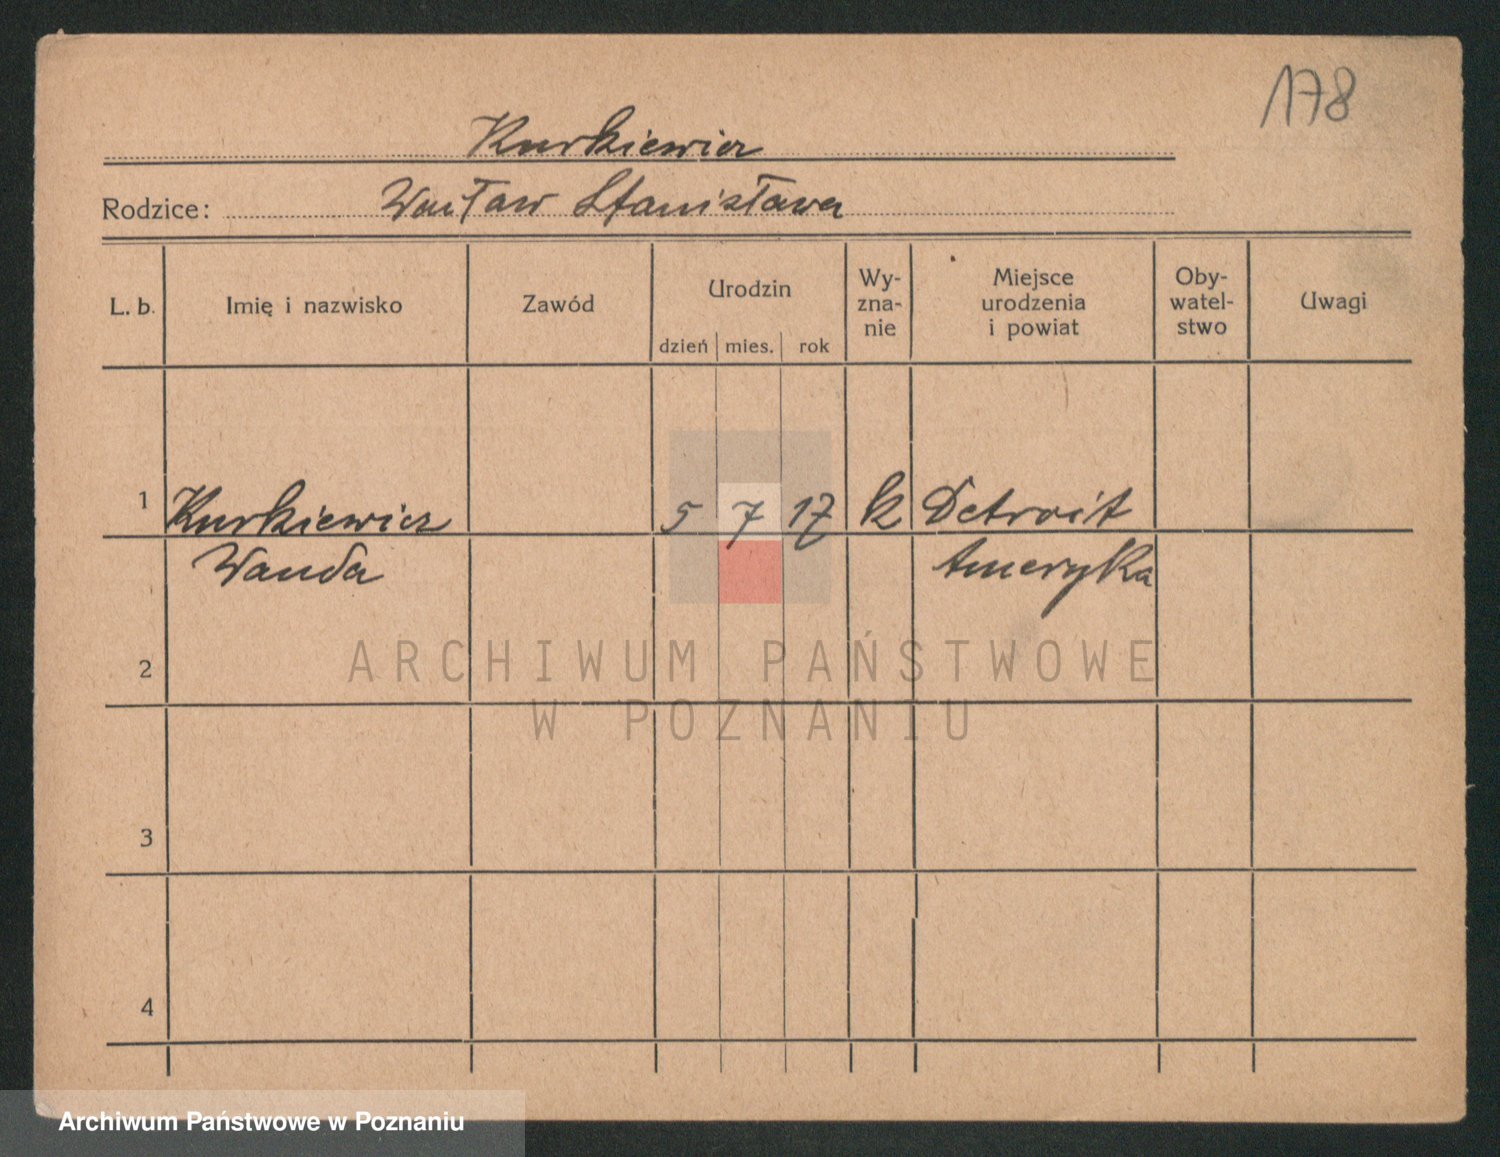 178
Kurkiewicz
Rodzice: Wacław Stanisława
L. b. Imię i nazwisko Zawód Urodzin Wy- Miejsce Oby- Uwagi
zna- urodzenia watel-
nie i powiat stwo
dzień mies. rok
1 Kurkiewicz 5 7 17 k Detroit
Wanda Ameryka
2
ARCHIWUM PAŃSTWOWE
W POZNANIU
3
4
Archiwum Państwowe w Poznaniu